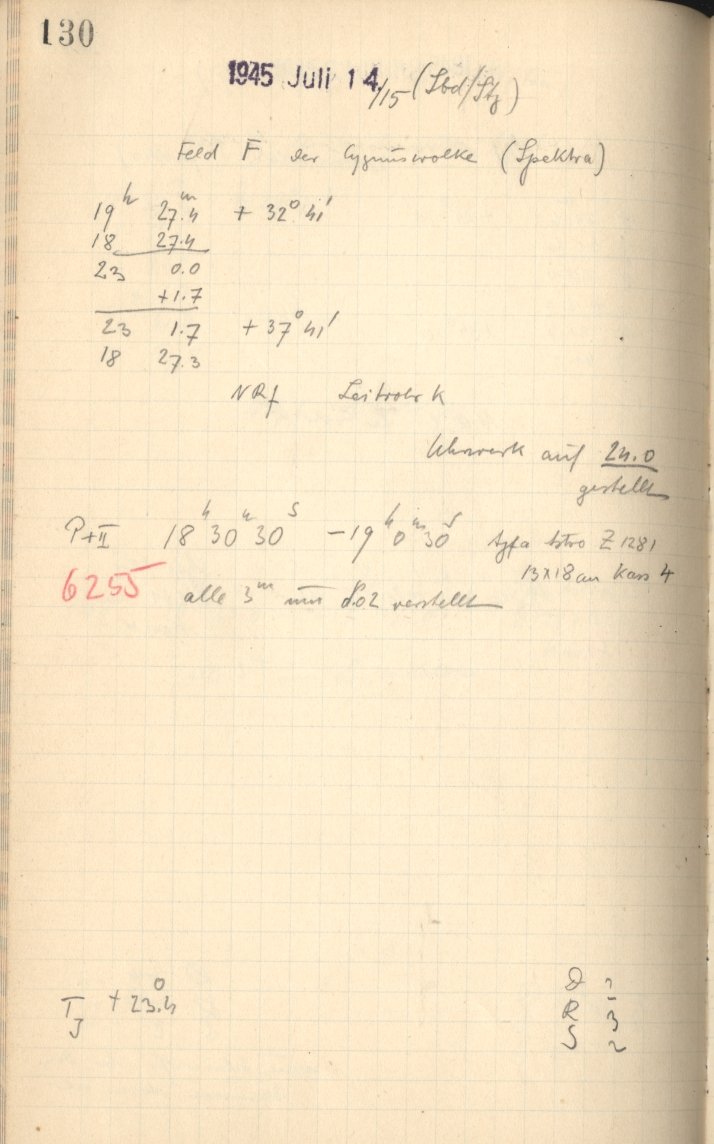 130
1945 Juli 14/15 (Sbd/Stz)
Feld F der Cygnuswolke (Spektra)
19ʰ 27.4ᵐ + 32° 41′
18 27.4
23 0.0
+1.7
23 1.7 + 37° 41′
18 27.3
NRf Leitrohr K
Uhrwerk auf 24.0
gestellt
P+II 18ʰ 30ᵐ 30ˢ – 19ʰ 0ᵐ 30ˢ Agfa Astro Z 1281
13x18 cm Kass 4
6255 alle 3ᵐ um verstellt
T_J + 23.°4
R 3
S 2